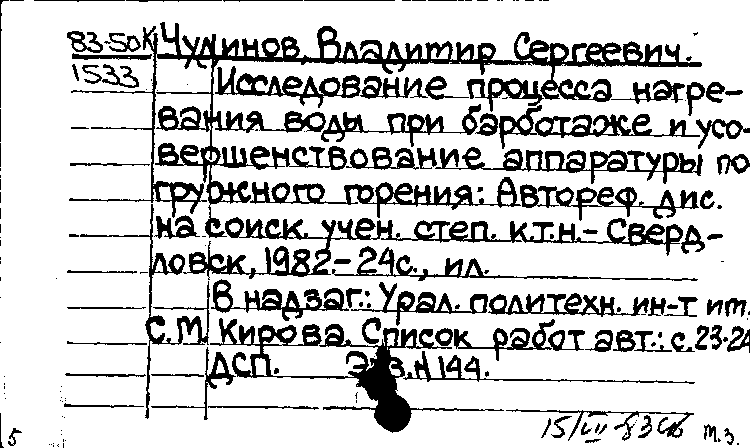 83-50К Чудинов, Владимир Сергеевич.
1533 Исследование процесса нагре-
вания воды при барботаже и усо-
вершенствование аппаратуры по
гружного горения: Автореф. дис.
на соиск. учен. степ. к.т.н.- Сверд-
ловск, 1982.- 24с., ил.
В надзаг.: Урал. политехн. ин-т им.
С.М. Кирова. Список работ авт.: с.23-24
ДСП. Экз.N 144.
5 15/III-83 м.з.